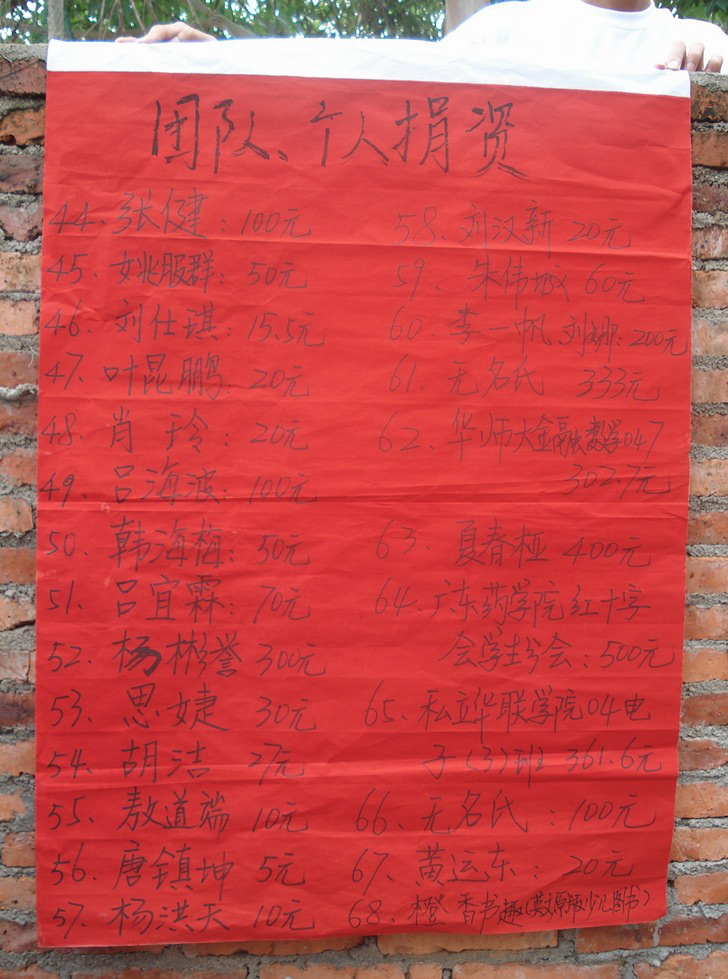 团队、个人捐资
44、张健：100元
45、姚服群：50元
46、刘仕琪：15.5元
47、叶昆鹏：20元
48、肖玲：20元
49、吕海波：100元
50、韩海梅：50元
51、吕宜霖：70元
52、杨彬誉300元
53、思婕 30元
54、胡洁 27元
55、敖道端 10元
56、唐镇坤 5元
57、杨洪天 10元
58、刘汉新 20元
59、朱伟 60元
60、李一帆 刘娜：200元
61、无名氏 333元
62、华师大金融数学047
302.7元
63、夏春桠 400元
64、广东药学院红十字
会学生分会：500元
65、私立华联学院04电
子(3)班 361.6元
66、无名氏：100元
67、黄运东：20元
68、橙香书趣(英文原版少儿图书)